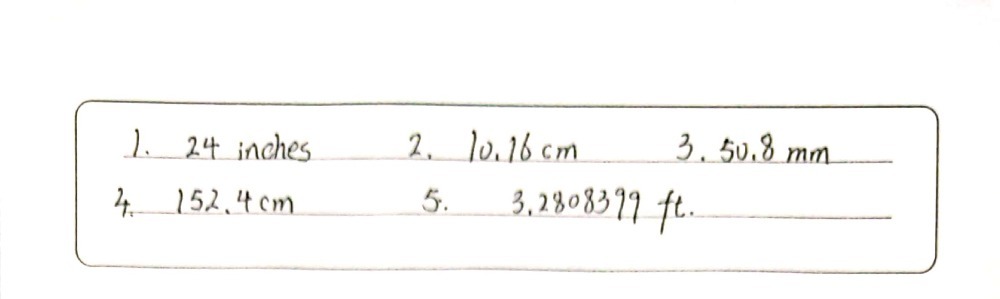 1. 24 inches 2. 10.16 cm 3. 50.8 mm
4. 152.4 cm 5. 3.2808399 ft.